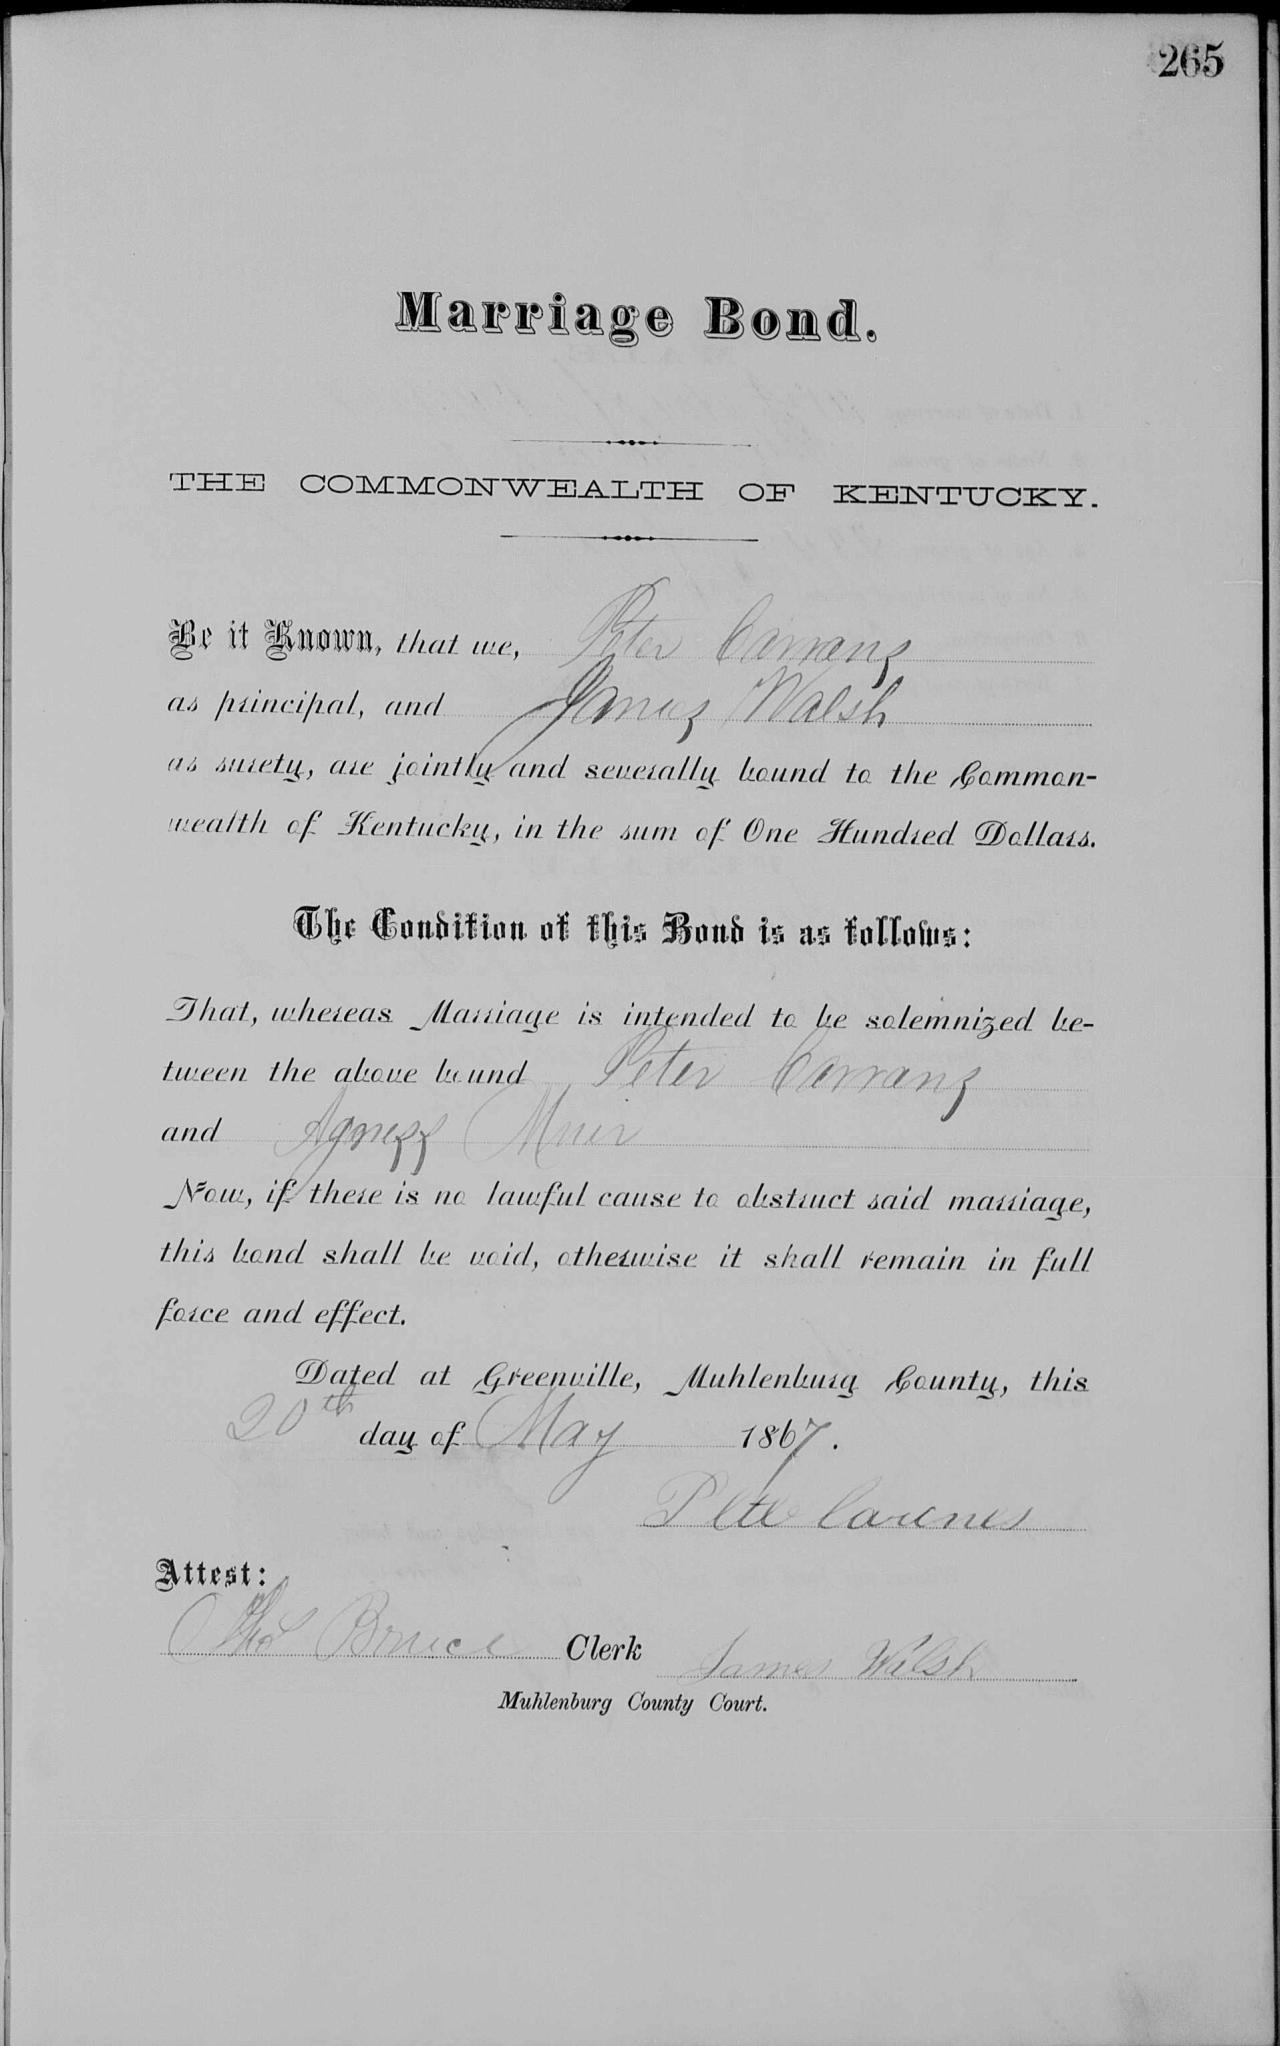 265
Marriage Bond.
THE COMMONWEALTH OF KENTUCKY.
Be it Known, that we, Peter Carrans
as principal, and James Walsh
as surety, are jointly and severally bound to the Common-
wealth of Kentucky, in the sum of One Hundred Dollars.
The Condition of this Bond is as follows:
That, whereas Marriage is intended to be solemnized be-
tween the above bound Peter Carrans
and Agness Muir
Now, if there is no lawful cause to obstruct said marriage,
this bond shall be void, otherwise it shall remain in full
force and effect.
Dated at Greenville, Muhlenburg County, this
20th day of May 1867.
Pete
Attest:
Bruce Clerk James Walsh
Muhlenburg County Court.